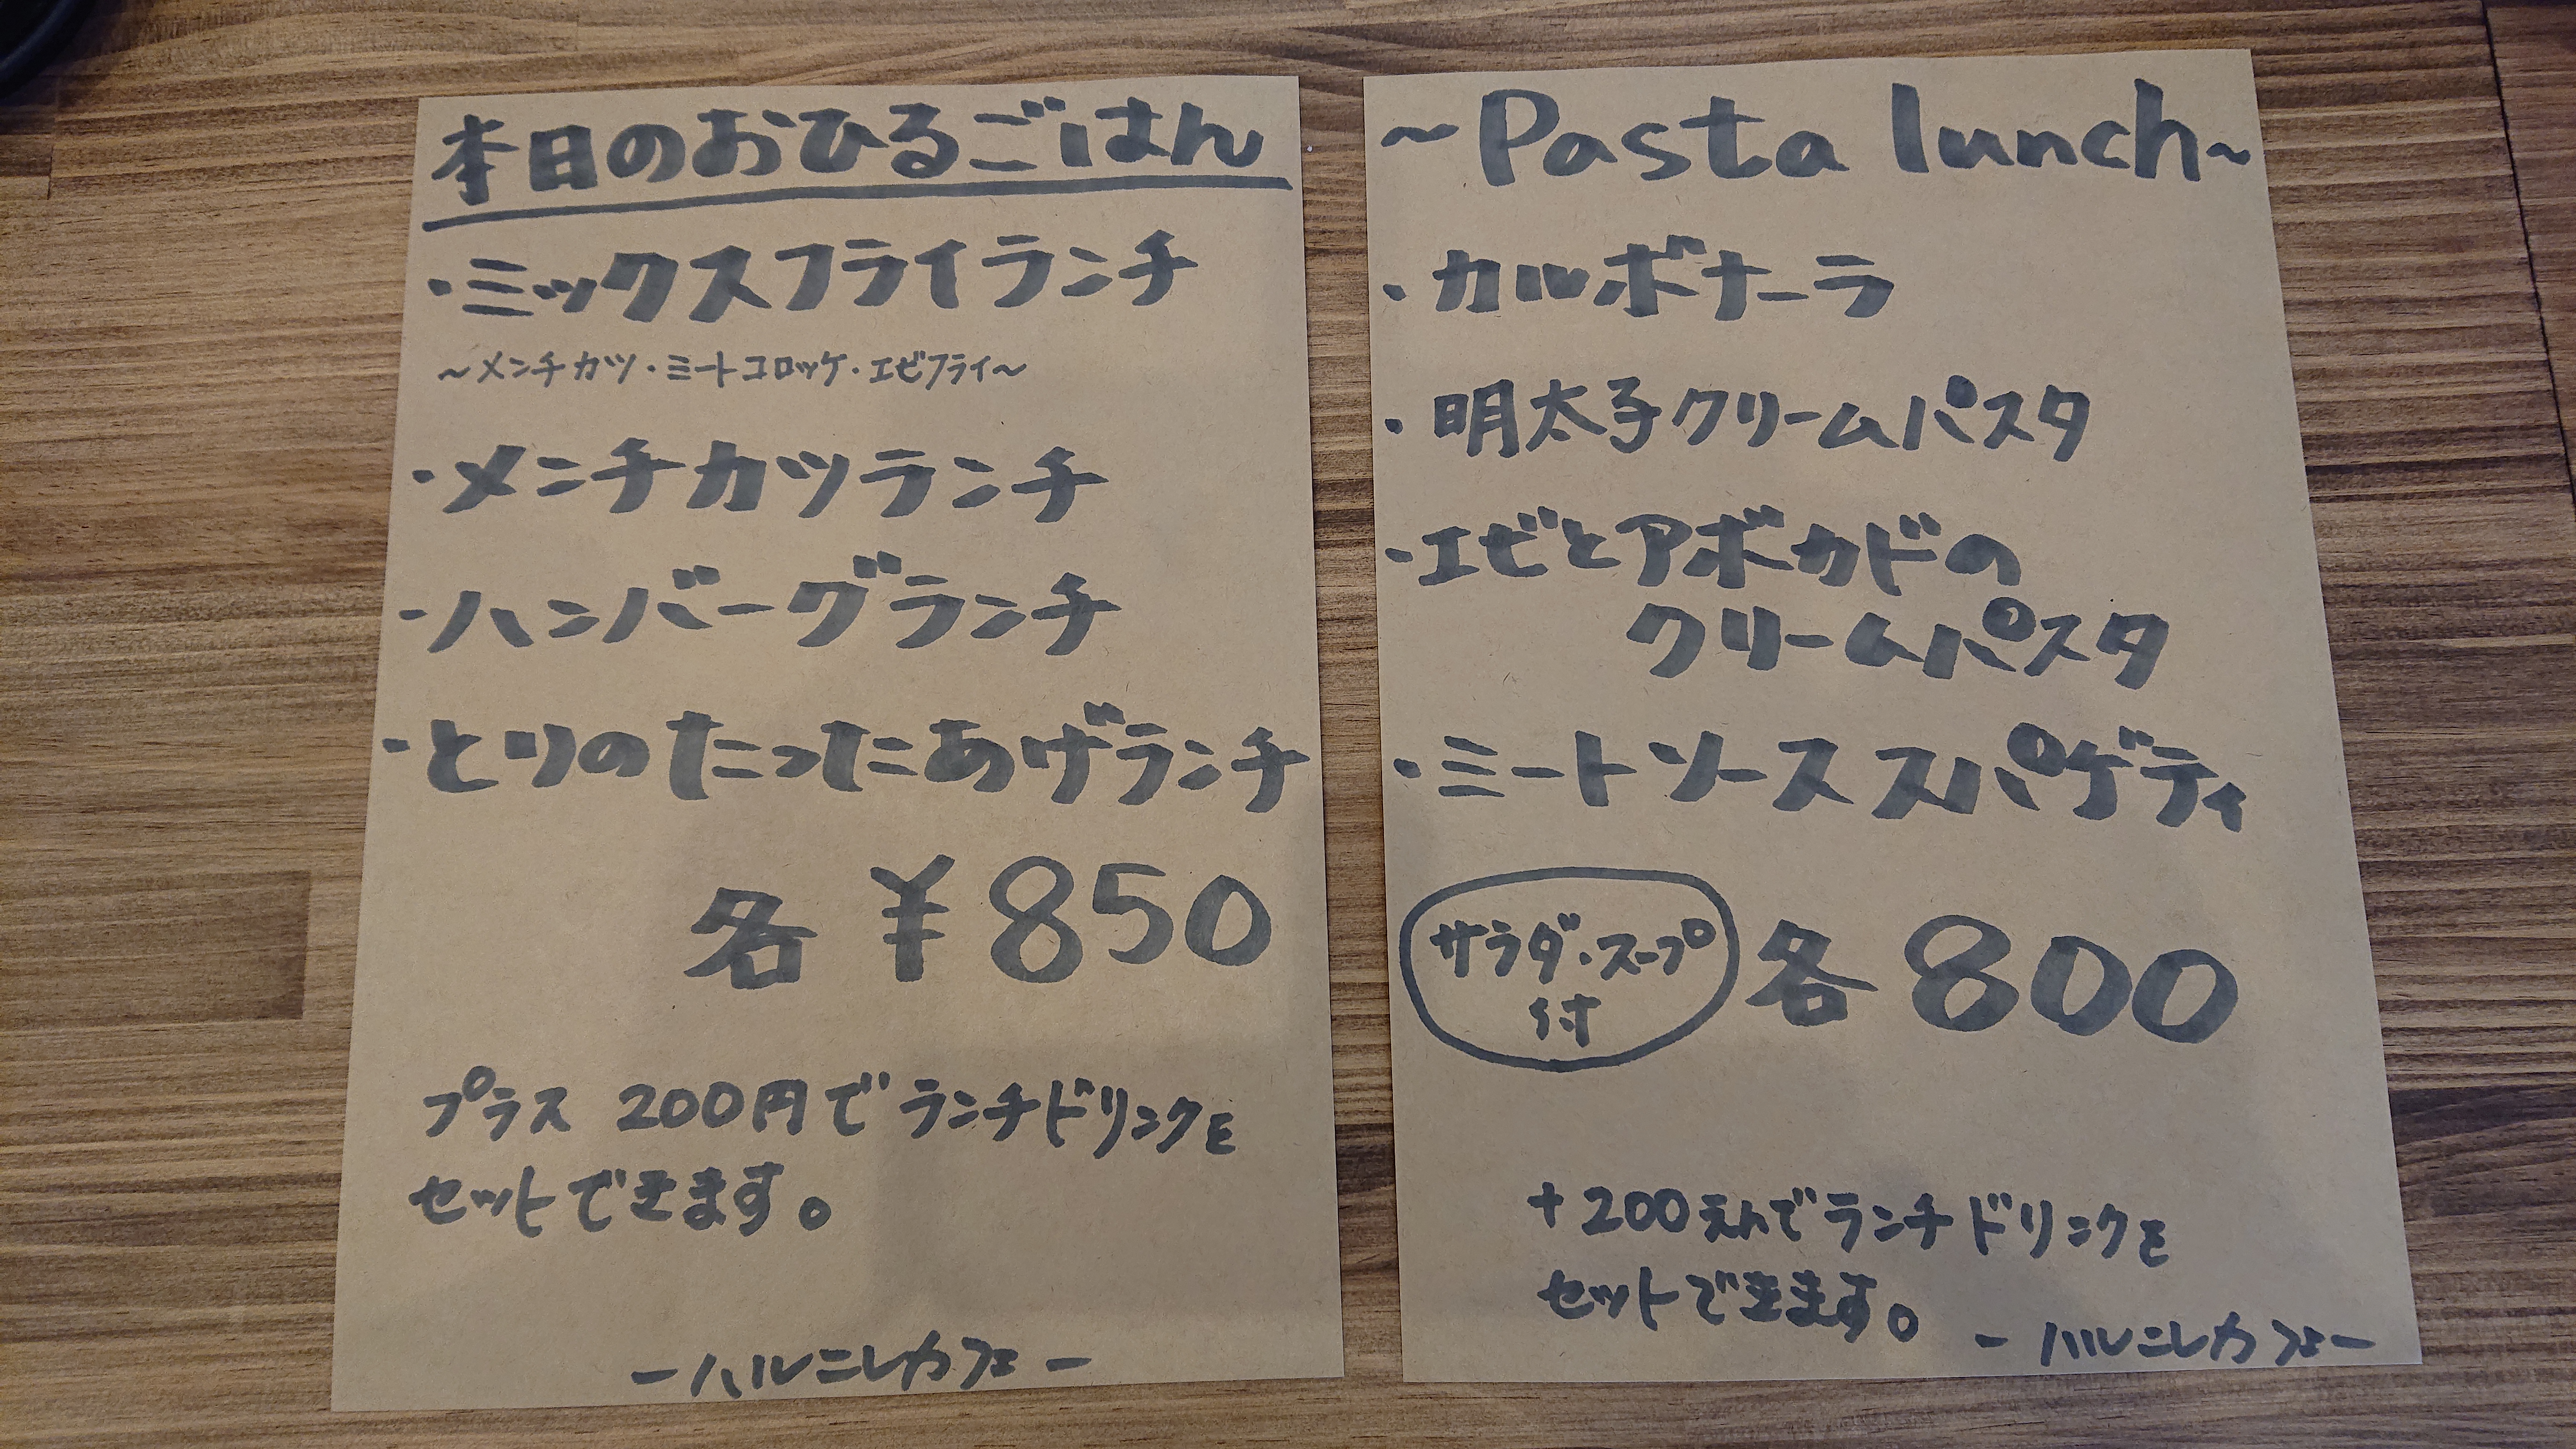 本日のおひるごはん
・ミックスフライランチ
～メンチカツ・ミートコロッケ・エビフライ～
・メンチカツランチ
・ハンバーグランチ
・とりのたったあげランチ
各 ¥850
プラス 200円でランチドリンクを
セットできます。
ーハルニレカフェー
～Pasta lunch～
・カルボナーラ
・明太子クリームパスタ
・エビとアボカドの
クリームパスタ
・ミートソーススパゲティ
サラダ・スープ
付
各800
+200えんでランチドリンクを
セットできます。
ーハルニレカフェー